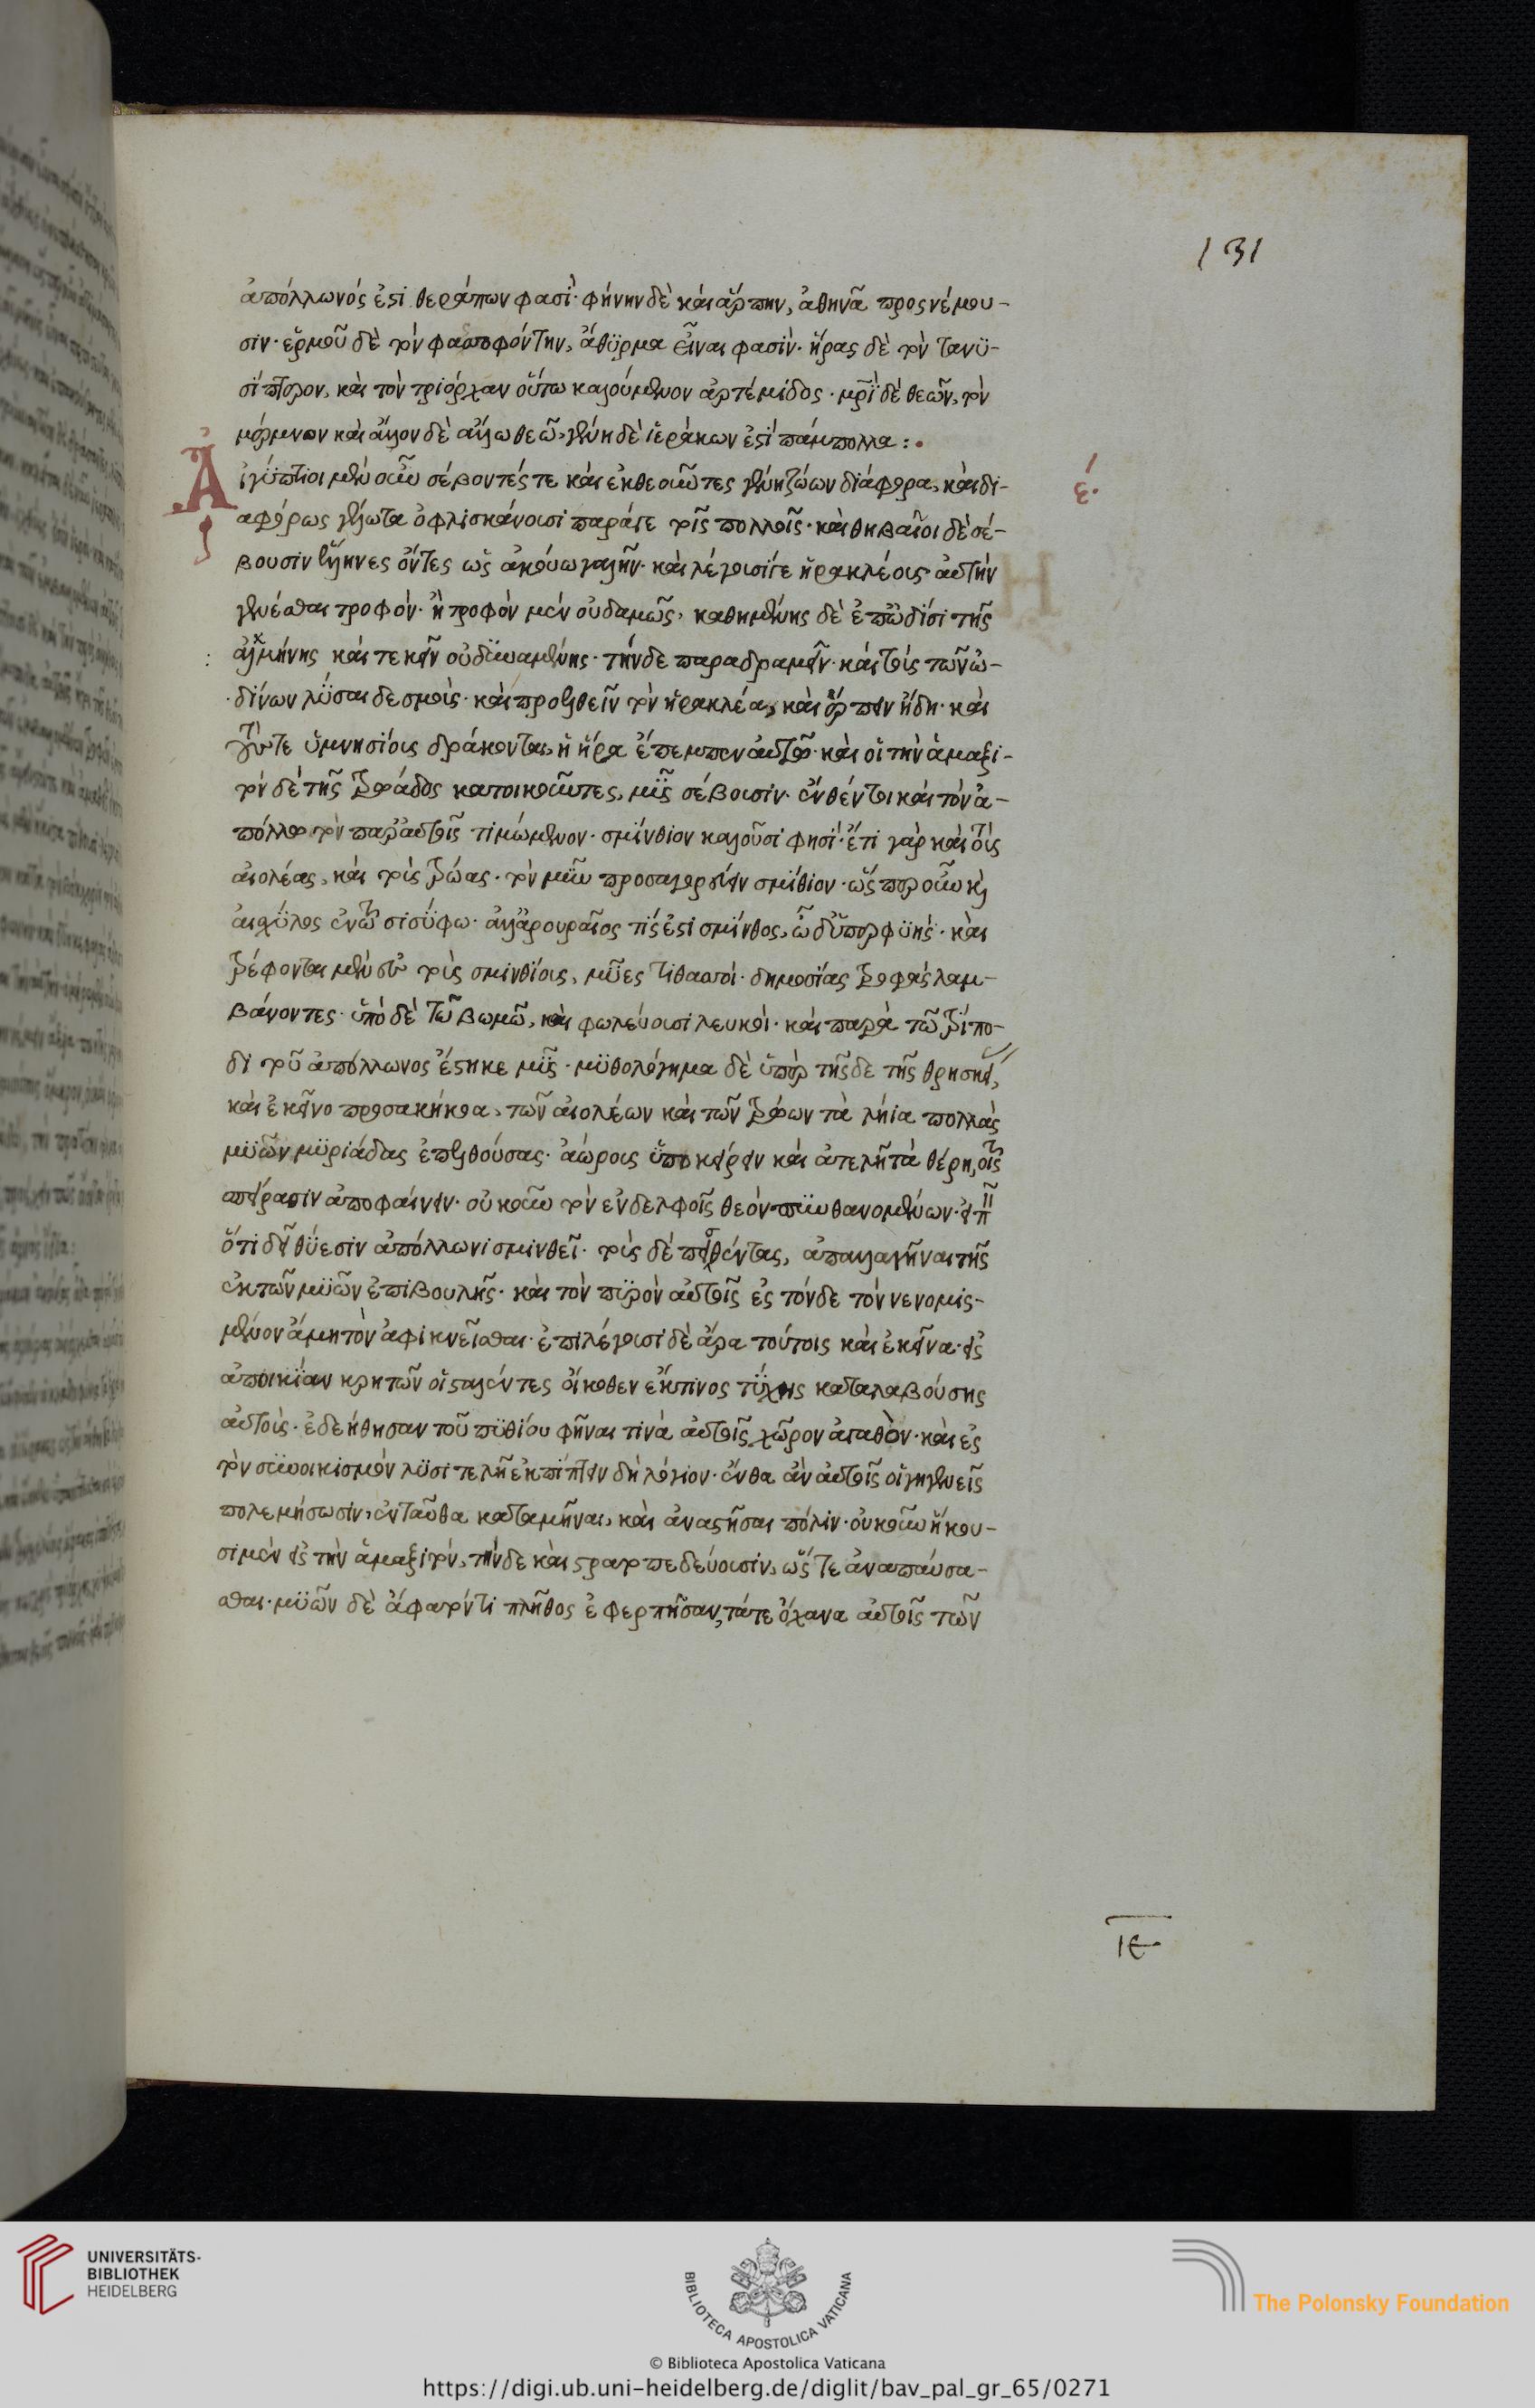 131
ἀπόλλωνός ἐστι θεράπων φασί· φήνην δὲ καὶ ἅρπην, ἀθηνᾶ προς νέμου-
σιν· ἑρμοῦ δὲ τὸν φασσοφόντην, ἄθϋρμα εἶναι φασίν· ἥρας δὲ τὸν τανϋ-
σίπτερον, καὶ τὸν τριόρχαν οὕτω καλούμενον ἀρτέμιδος· μρῒ δὲ θεῶν, τὸν
μόρμνον καὶ ἄλλον δὲ ἄλλω θεῶ, γένη δὲ ἱεράκων ἐστὶ πάμπολλα:.
Αἰγύπτιοι μὲν οὖν σέβοντές τε καὶ ἐκθεοῦντες γένη ζώων διάφορα, καὶ δι-
ε΄.
αφόρως γέλωτα ὀφλισκάνουσι παράγε τοῖς πολλοῖς· καὶ θηβαῖοι δὲ σέ-
βουσιν ἕλληνες ὄντες ὡς ἀκούω γαλῆν· καὶ λέγουσί γε ἡρακλέους αὐτὴν
γενέσθαι τροφόν· ἢ τροφὸν μὲν οὐδαμῶς, καθημένης δὲ ἐπ' ὠδῖσι τῆς
ἀλκμήνης καὶ τεκεῖν οὐ δυναμένης· τήνδε παραδραμεῖν· καὶ τοὺς τῶν ὠ-
δίνων λῦσαι δεσμούς· καὶ προελθεῖν τὸν ἡρακλέα, καὶ ἕρπειν ἤδη· καὶ
ὕμνησίους δράκοντας, ἡ ἥρα ἔπεμπεν αὐτῶ· καὶ οἱ τὴν ἁμαξι-
τὸν δὲ τῆς τρωάδος κατοικοῦντες, μῦς σέβουσιν· ἔνθέν τοι καὶ τὸν ἀ-
πόλλω τὸν παρ' αὐτοῖς τιμώμενον· σμίνθιον καλοῦσί φησι· ἔτι γὰρ καὶ τοὺς
αἰολέας, καὶ τοὺς τρώας· τὸν μῦν προσαγορεύειν σμίθιον· ὥς περ οὖν καὶ
αἰσχύλος ἐν τῶ σισύφω· ἀλλ' ἀρουραῖος τίς ἐστι σμίνθος, ὧδ' ὑπερφυής· καὶ
τρέφονται μὲν ἐν τοῖς σμινθίοις, μύες τιθασσοί· δημοσίας τροφὰς λαμ-
βάνοντες· ὑπὸ δὲ τῶ βωμῶ, καὶ φωλεύουσι λευκοί· καὶ παρὰ τῶ τρίπο-
δι τοῦ ἀπόλλωνος ἕστηκε μῦς· μϋθολόγημα δὲ ὑπὲρ τῆς δε τῆς θρησκεί,
καὶ ἐκεῖνο προσακήκοα, τῶν αἰολέων καὶ τῶν τρώων τὰ λήϊα πολλὰς
μϋῶν μϋριάδας ἐπελθούσας· ἀώρους ὑποκείρειν καὶ ἀτελῆ τὰ θέρη, τοῖς
σπείρασιν ἀποφαίνειν· οὐκοῦν τὸν ἐν δελφοῖς θεὸν πυνθανομένων· εἰπεῖν
ὅτι δεῖ θύεσιν ἀπόλλωνι σμινθεῖ· τοὺς δὲ πεισθέντας, ἀπαλλαγῆναι τῆς
ἐκ τῶν μϋῶν ἐπιβουλῆς· καὶ τὸν πϋρὸν αὐτοῖς ἐς τόνδε τὸν νενομις-
μένον ἄμητον ἀφικνεῖσθαι· ἐπιλέγουσι δὲ ἄρα τούτοις καὶ ἐκεῖνα· εἰς
ἀποικίαν κρητῶν οἱ σταλέντες οἴκοθεν ἔκ τινος τύχης καταλαβούσης
αὐτούς· ἐδεήθησαν τοῦ πϋθίου φῆναι τινὰ αὐτοῖς χῶρον ἀγαθὸν· καὶ ἐς
τὸν συνοικισμὸν λϋσιτελῆ ἐκπίπτειν δὴ λόγιον· ἔνθα ἂν αὐτοῖς οἱ γηγενεῖς
πολεμήσωσιν, ἐνταῦθα καταμεῖναι, καὶ ἀναστῆσαι πόλιν· οὐκοῦν ἥκου-
σι μὲν εἰς τὴν ἁμαξιτὸν, τήνδε καὶ στρατοπεδεύουσιν, ὥς τε ἀναπαύσα-
σθαι· μϋῶν δὲ ἄφατόν τι πλῆθος ἐφερπῆσαν, τάτε ὄχανα αὐτοῖς τῶν
ιε
UNIVERSITÄTS-
BIBLIOTHEK
HEIDELBERG
BIBLIOTECA APOSTOLICA VATICANA
The Polonsky Foundation
© Biblioteca Apostolica Vaticana
https://digi.ub.uni-heidelberg.de/diglit/bav_pal_gr_65/0271